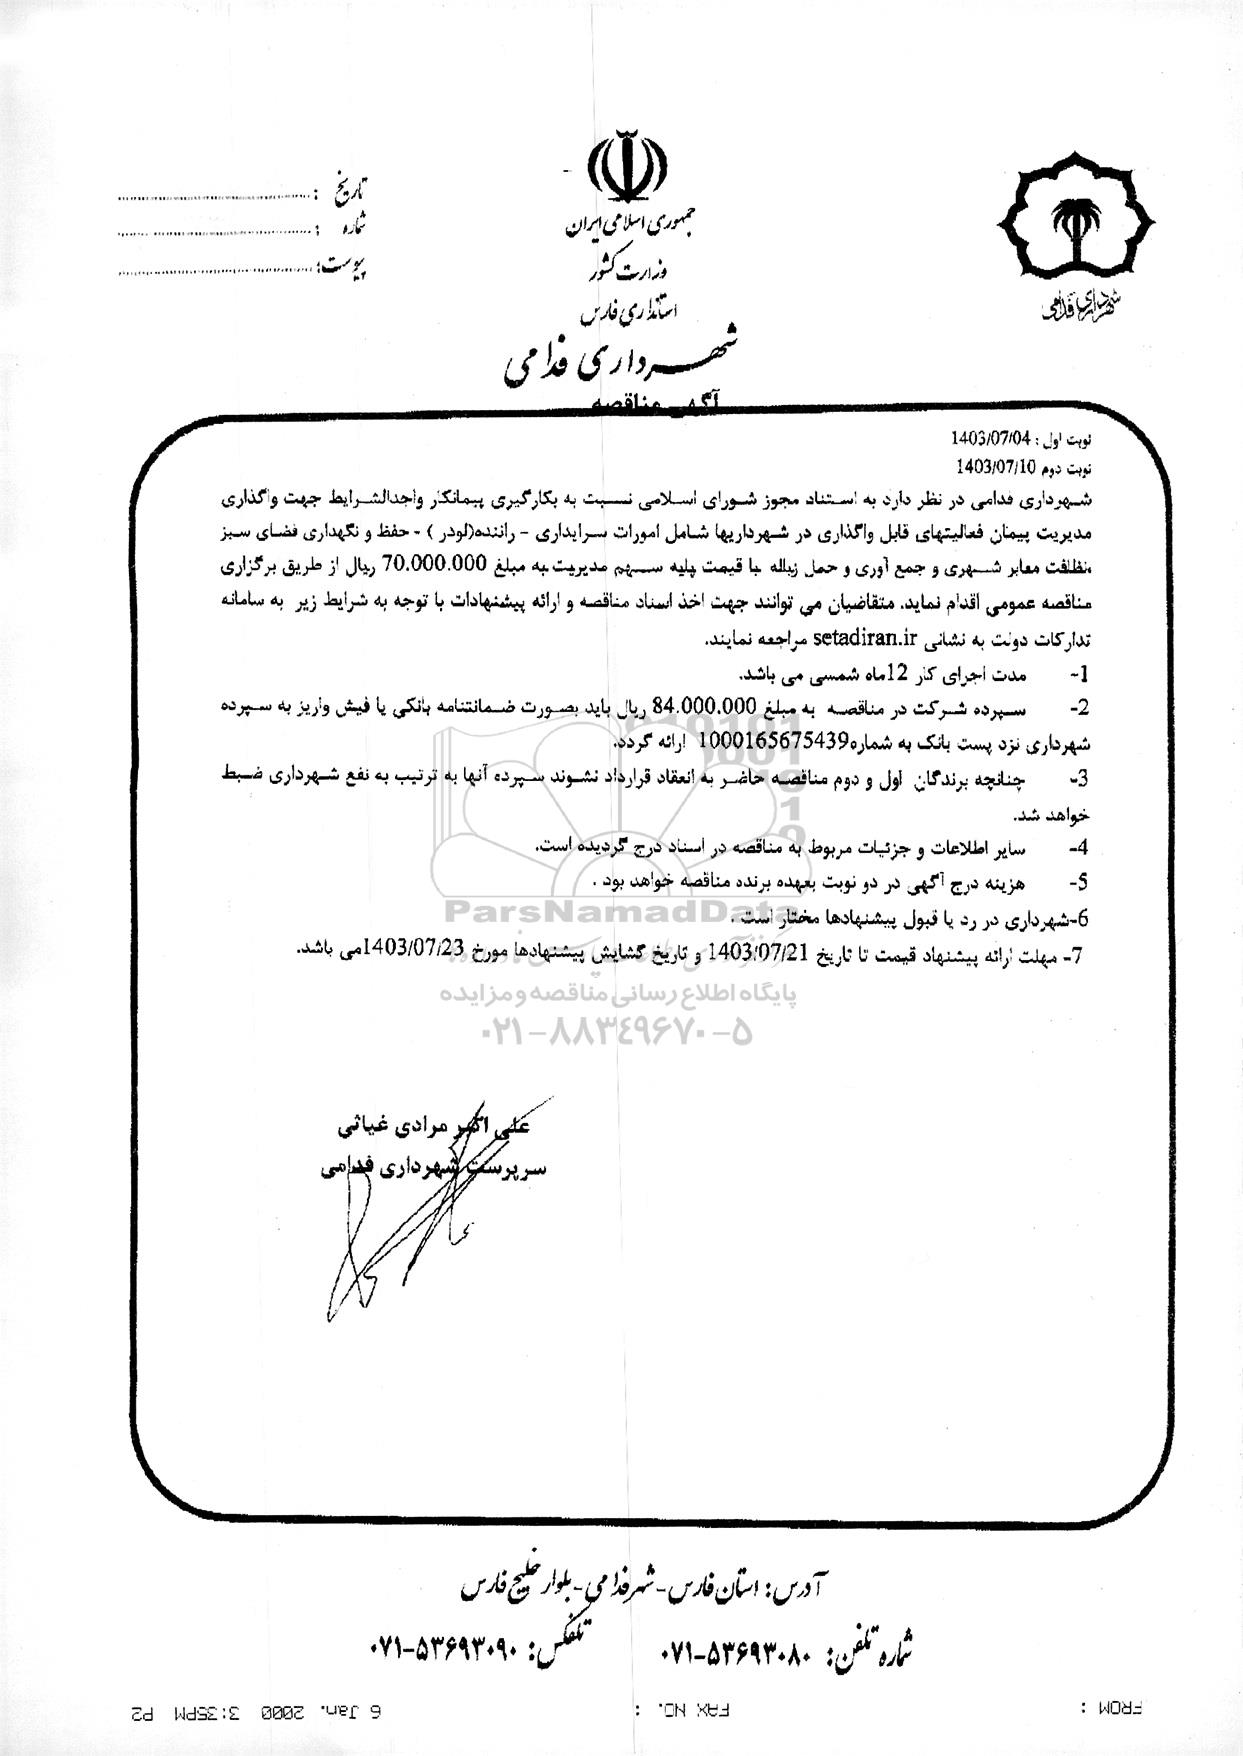 جمهوری اسلامی ایران
وزارت کشور
استانداری فارس
شهرداری فدامی
شهرداری فدامی
تاریخ :
شماره :
پیوست:
آگهی مناقصه
نوبت اول : 1403/07/04
نوبت دوم 1403/07/10
شهرداری فدامی در نظر دارد به استناد مجوز شورای اسلامی نسبت به بکارگیری پیمانکار واجدالشرایط جهت واگذاری
مدیریت پیمان فعالیتهای قابل واگذاری در شهرداریها شامل امورات سرایداری - راننده(لودر ) - حفظ و نگهداری فضای سبز
،نظافت معابر شهری و جمع آوری و حمل زباله با قیمت پایه سهم مدیریت به مبلغ 70.000.000 ریال از طریق برگزاری
مناقصه عمومی اقدام نماید. متقاضیان می توانند جهت اخذ اسناد مناقصه و ارائه پیشنهادات با توجه به شرایط زیر به سامانه
تدارکات دولت به نشانی setadiran.ir مراجعه نمایند.
1- مدت اجرای کار 12ماه شمسی می باشد.
2- سپرده شرکت در مناقصه به مبلغ 84.000.000 ریال باید بصورت ضمانتنامه بانکی یا فیش واریز به سپرده
شهرداری نزد پست بانک به شماره1000165675439 ارائه گردد.
3- چنانچه برندگان اول و دوم مناقصه حاضر به انعقاد قرارداد نشوند سپرده آنها به ترتیب به نفع شهرداری ضبط
خواهد شد.
4- سایر اطلاعات و جزئیات مربوط به مناقصه در اسناد درج گردیده است.
5- هزینه درج آگهی در دو نوبت بعهده برنده مناقصه خواهد بود .
6-شهرداری در رد یا قبول پیشنهادها مختار است .
7- مهلت ارائه پیشنهاد قیمت تا تاریخ 1403/07/21 و تاریخ گشایش پیشنهادها مورخ 1403/07/23می باشد.
ParsNamadData
پایگاه اطلاع رسانی مناقصه و مزایده
۰۲۱-۸۸۳۴۹۶۷۰-۵
علی اکبر مرادی غیاثی
سرپرست شهرداری فدامی
آدرس: استان فارس - شهر فدامی - بلوار خلیج فارس
شماره تلفن: ۰۷۱-۵۳۶۹۳۰۸۰ تلفکس: ۰۷۱-۵۳۶۹۳۰۹۰
FROM : FAX NO. : 6 Jan. 2000 3:35PM P2